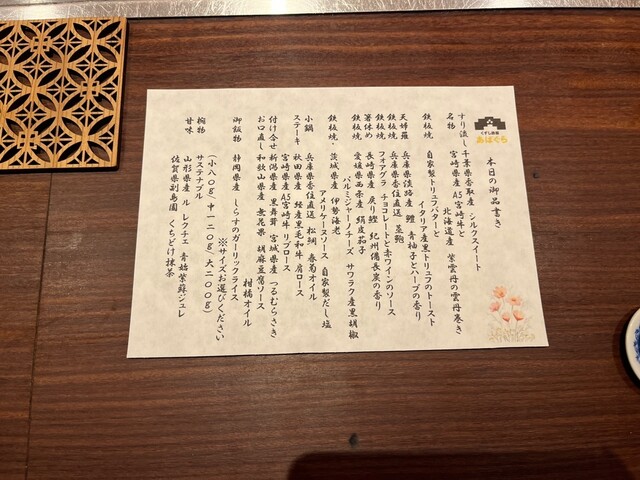 くずし鉄板
あばぐら
本日の御品書き
すり流し 千葉県香取産 シルクスイート
名物 宮崎県産A5宮崎牛と
北海道産 紫雲丹の雲丹巻き
鉄板焼 自家製トリュフバターと
イタリア産黒トリュフのトースト
天婦羅 兵庫県淡路産 鱧 青柚子とハーブの香り
鉄板焼 兵庫県香住直送 茎鮑
鉄板焼 フォアグラ チョコレートと赤ワインのソース
箸休め 長崎県産 戻り鰹 紀州備長炭の香り
鉄板焼 愛媛県西条産 絹皮茄子
パルミジャーノチーズ サワラク産黒胡椒
鉄板焼 茨城県産 伊勢海老
アメリケーヌソース 自家製だし塩
小鍋 兵庫県香住直送 松茸 春菊オイル
ステーキ 秋田県産 経産黒毛和牛 肩ロース
宮崎県産 A5宮崎牛 リブロース
付け合せ 新潟県産 黒舞茸 宮城県産 つるむらさき
お口直し 和歌山県産 無花果 胡麻豆腐ソース
柑橘オイル
御飯物 静岡県産 しらすのガーリックライス
※サイズお選びください
(小八〇g/中一二〇g/大二〇〇g)
椀物 サステナブル
甘味 山形県産 ル レクチェ 青姑紫蘇ジュレ
佐賀県副島園 くちどけ抹茶